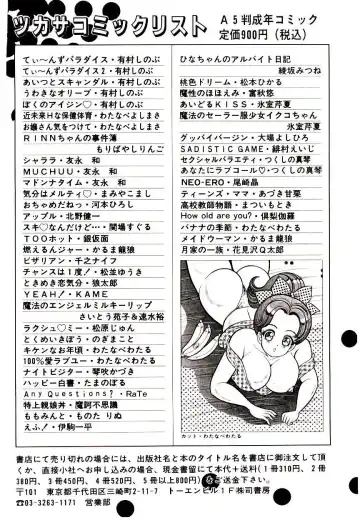 ツカサコミックリスト
A5判成年コミック
定価900円(税込)
てぃ〜んずパラダイス・有村しのぶ
てぃ〜んずパラダイス2・有村しのぶ
あいつとスキャンダル・有村しのぶ
うわきなオリーブ・有村しのぶ
ぼくのアイジン♡・有村しのぶ
近未来Hな保健体育・わたなべよしまさ
お嬢さん気をつけて・わたなべよしまさ
RINNちゃんの事件薄
もりばやしりんご
シャララ・友永 和
MUCHUU・友永 和
マドンナタイム・友永 和
気分はメルティ♡・まみやこまし
おちゃめだねっ・河本ひろし
アップル・北野健一
スキ♡なんだけど…・間場すぐる
TOOホット・銀仮面
燃えるンジャー・かるま龍狼
ビザリアン・千之ナイフ
チャンスは1度!・松並ゆうき
ときめき恋気分・狼太郎
YEAH!・KAME
魔法のエンジェルミルキーリップ
さいとう苑子&速水裕
ラクシュ♡ミー・松原じゅん
とくめいきぼう・のぎまこと
キケンなお年頃・わたなべわたる
100%愛ラブユー・わたなべわたる
ナイトビジター・琴吹かづき
ハッピー白書・たまのぼる
Any Questions?・RaTe
特上親娘丼・魔訶不思議
ももみんと・ものたりぬ
えふ!・伊駒一平
ひなちゃんのアルバイト日記
綾坂みつね
桃色ドリーム・松本ひかる
魔性のほほえみ・富秋悠
あいどるKISS・氷室芹夏
魔法のセーラー服少女イクコちゃん
氷室芹夏
グッバイバージン・大場よしひろ
SADISTIC GAME・緋村えいじ
セクシャルバラエティ・つくしの真琴
あなたにラブコール♡・つくしの真琴
NEO-ERO・尾崎晶
ティーンズ・ママ・あづさ甘菜
高校教師物語・まついもとき
How old are you?・倶梨伽羅
バナナの季節・わたなべわたる
メイドウーマン・かるま龍狼
月家の一族・花見沢Q太郎
カット・わたなべわたる
書店にて売り切れの場合には、出版社名と本のタイトル名を書店に御注文して頂
くか、直接小社へお申し込みの場合、現金書留にて本代+送料(1冊310円、2冊
380円、3冊450円、4冊520円、5冊以上800円)をご送金下さい。
〒101 東京都千代田区三崎町2-11-7 トーエンビル1F㈱司書房
☎03-3263-1171 営業部